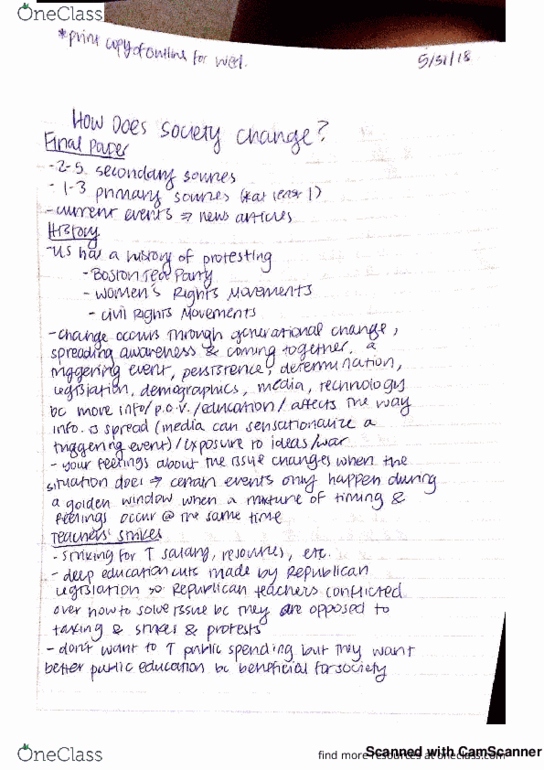 OneClass
*print copy of outline for wed.
5/31/18
How Does Society Change?
Final Paper
-2-5 secondary sources
-1-3 primary sources (*at least 1)
-current events → news articles
History
-US has a history of protesting
-Boston Tea Party
-Women's Rights Movements
-Civil Rights Movements
-change occurs through generational change,
spreading awareness & coming together, a
triggering event, persistence, determination,
legislation, demographics, media, technology
bc more info/p.o.v./education/affects the way
info. is spread (media can sensationalize a
triggering event)/exposure to ideas/war
-your feelings about the issue changes when the
situation does → certain events only happen during
a golden window when a mixture of timing &
feelings occur @ the same time
Teachers' Strikes
-striking for ↑ salary, resources, etc.
-deep education cuts made by Republican
legislation so Republican teachers conflicted
over how to solve issue bc they are opposed to
taxing & strikes & protests
-don't want to ↑ public spending but they want
better public education bc beneficial for society
OneClass
find more resources at oneclass.com
Scanned with CamScanner